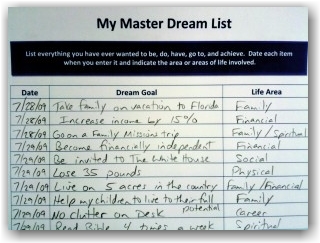 My Master Dream List
List everything you have ever wanted to be, do, have, go to, and achieve. Date each item
when you enter it and indicate the area or areas of life involved.
Date Dream Goal Life Area
7/28/09 Take family on vacation to Florida Family
7/28/09 Increase income by 15% Financial
7/28/09 Go on a Family Missions trip Family/Spiritual
7/29/09 Become financially independent Financial
7/29/09 Be invited to The White House Social
7/29/09 Lose 35 pounds Physical
7/29/09 Live on 5 acres in the country Family/Financial
7/29/09 Help my children to live to their full potential Family
7/29/09 No clutter on Desk Career
7/29/09 Read Bible 4 times a week Spiritual